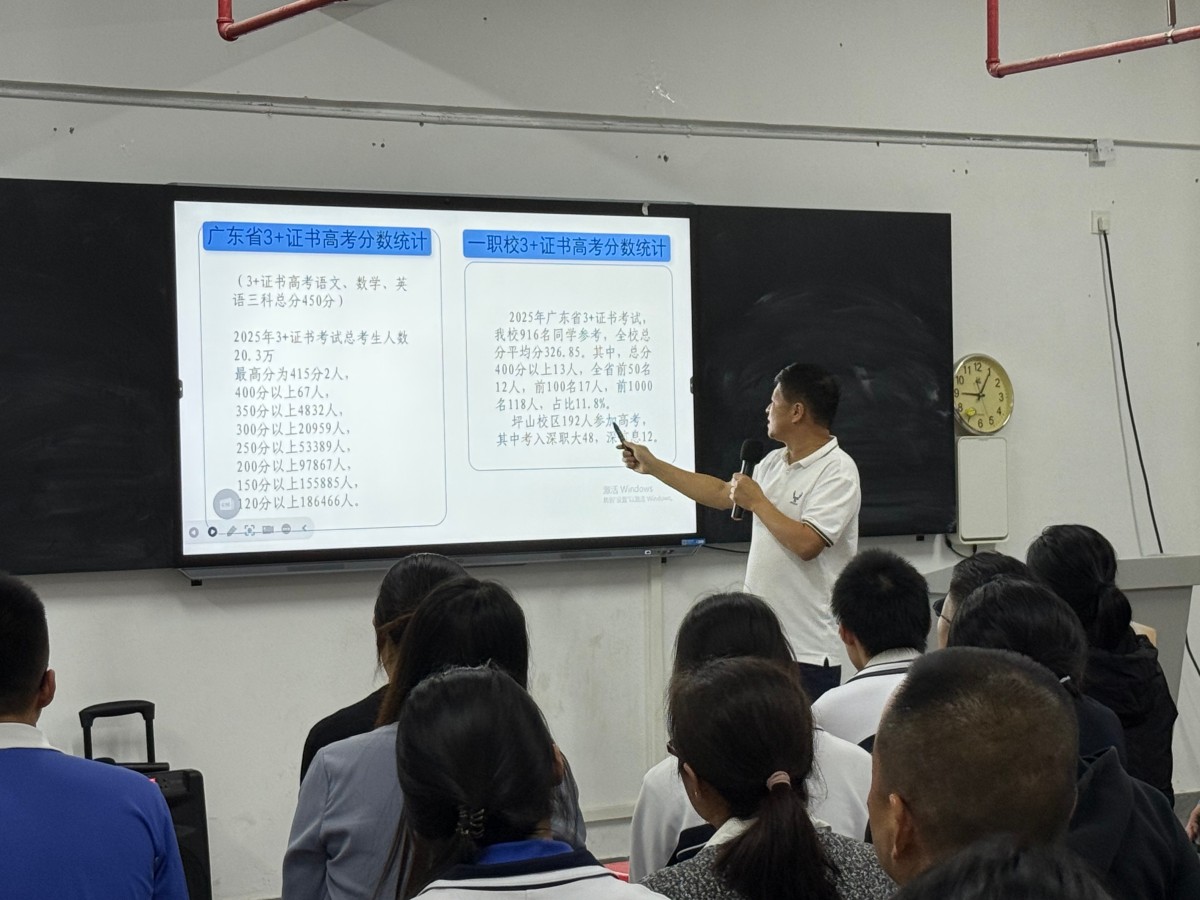 广东省3+证书高考分数统计
（3+证书高考语文、数学、英
语三科总分450分）
2025年3+证书考试总考生人数
20.3万
最高分为415分2人，
400分以上67人，
350分以上4832人，
300分以上20959人，
250分以上53389人，
200分以上97867人，
150分以上155885人，
120分以上186466人。
一职校3+证书高考分数统计
2025年广东省3+证书考试，
我校916名同学参考，全校总
分平均分326.85。其中，总分
400分以上13人，全省前50名
12人，前100名17人，前1000
名118人，占比11.8%。
坪山校区192人参加高考，
其中考入深职大48，深信息12。
激活 Windows
12
1
2
3
4